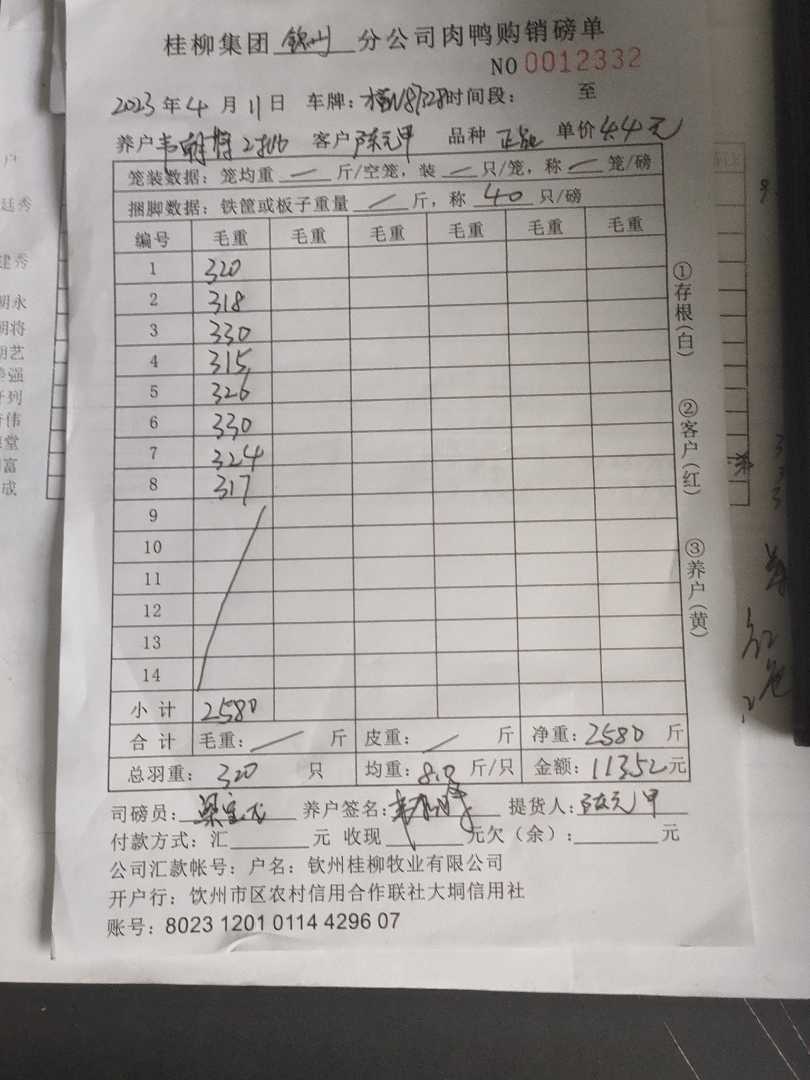 桂柳集团 钦州 分公司肉鸭购销磅单
NO 0012332
2023 年 4 月 11 日 车牌: 时间段: 至
养户 韦朝将 2批 客户 陈元甲 品种 正 单价 4.4 元
笼装数据: 笼均重 — 斤/空笼, 装 — 只/笼, 称 — 笼/磅
捆脚数据: 铁筐或板子重量 — 斤, 称 40 只/磅
编号 毛重 毛重 毛重 毛重 毛重 毛重
1 320
2 318
3 330
4 315
5 326
6 330
7 324
8 317
9
10
11
12
13
14
小计 2580
合计 毛重: — 斤 皮重: — 斤 净重: 2580 斤
总羽重: 320 只 均重: 8.0 斤/只 金额: 11352 元
司磅员: 养户签名: 提货人: 陈元甲
付款方式: 汇 元 收现 元欠(余): 元
公司汇款帐号: 户名: 钦州桂柳牧业有限公司
开户行: 饮州市区农村信用合作联社大垌信用社
账号: 8023 1201 0114 4296 07
①存根(白)
②客户(红)
③养户(黄)
户
廷秀
建秀
朝永
朝将
朝艺
强
列
伟
堂
富
成